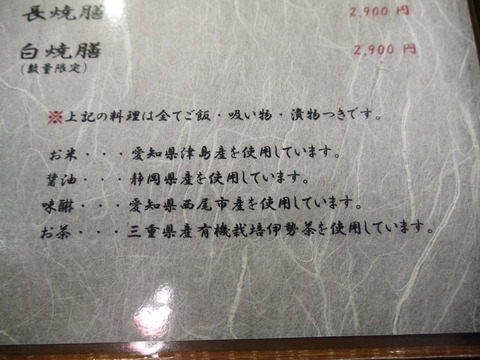 長焼膳 2,900 円
白焼膳 2,900 円
(数量限定)
※上記の料理は全てご飯・吸い物・漬物つきです。
お米・・・愛知県津島産を使用しています。
醤油・・・静岡県産を使用しています。
味醂・・・愛知県西尾市産を使用しています。
お茶・・・三重県産有機栽培伊勢茶を使用しています。